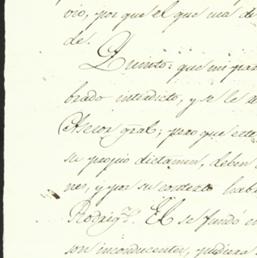 rio, porque el que va de
de.
Quinto: que mi pa
brado interdicto, y se le
Asesor gral; pero que este
su propio dictamen, deben
nes, y por su contexto hab
Rodrigz. El se fundó en
son inconducentes, pudiera